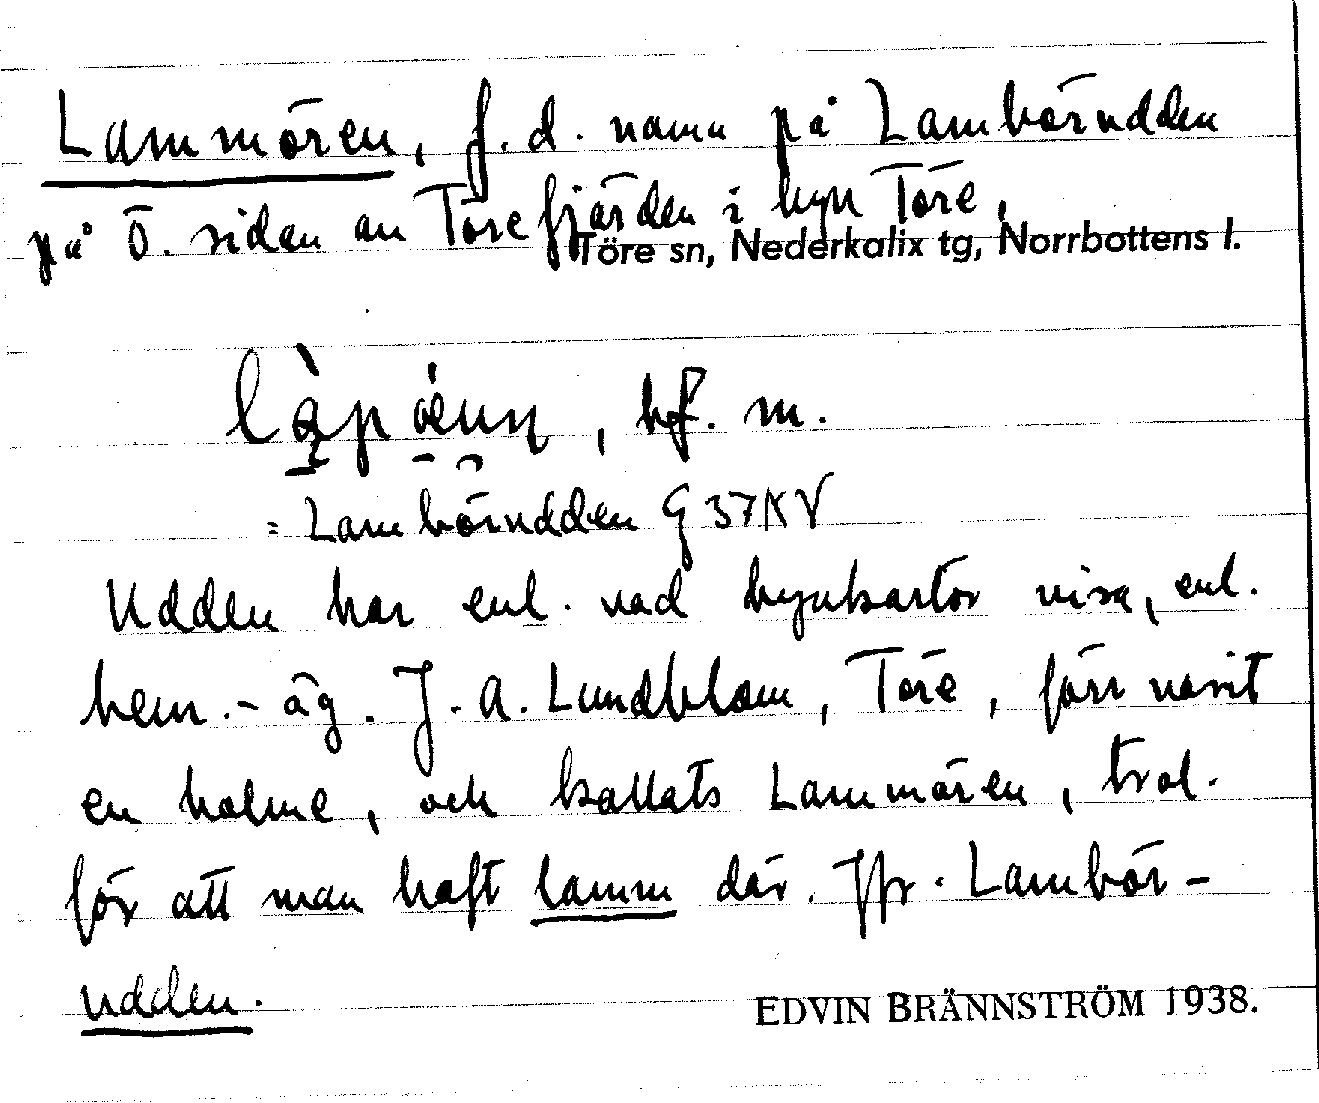 Lammören, f.d. namn på Lambörudden
på Ö. sidan av Törefjärden i byn Töre,
Töre sn, Nederkalix tg, Norrbottens l.
bf. m.
= Lambörudden G 37 K V
Udden har enl. vad byakartor visa, enl.
hem.-äg. J. A. Lundblom, Töre, förr varit
en holme, och kallats Lammören, trol.
för att man haft lamm där. Jfr. Lambör-
udden.
EDVIN BRÄNNSTRÖM 1938.